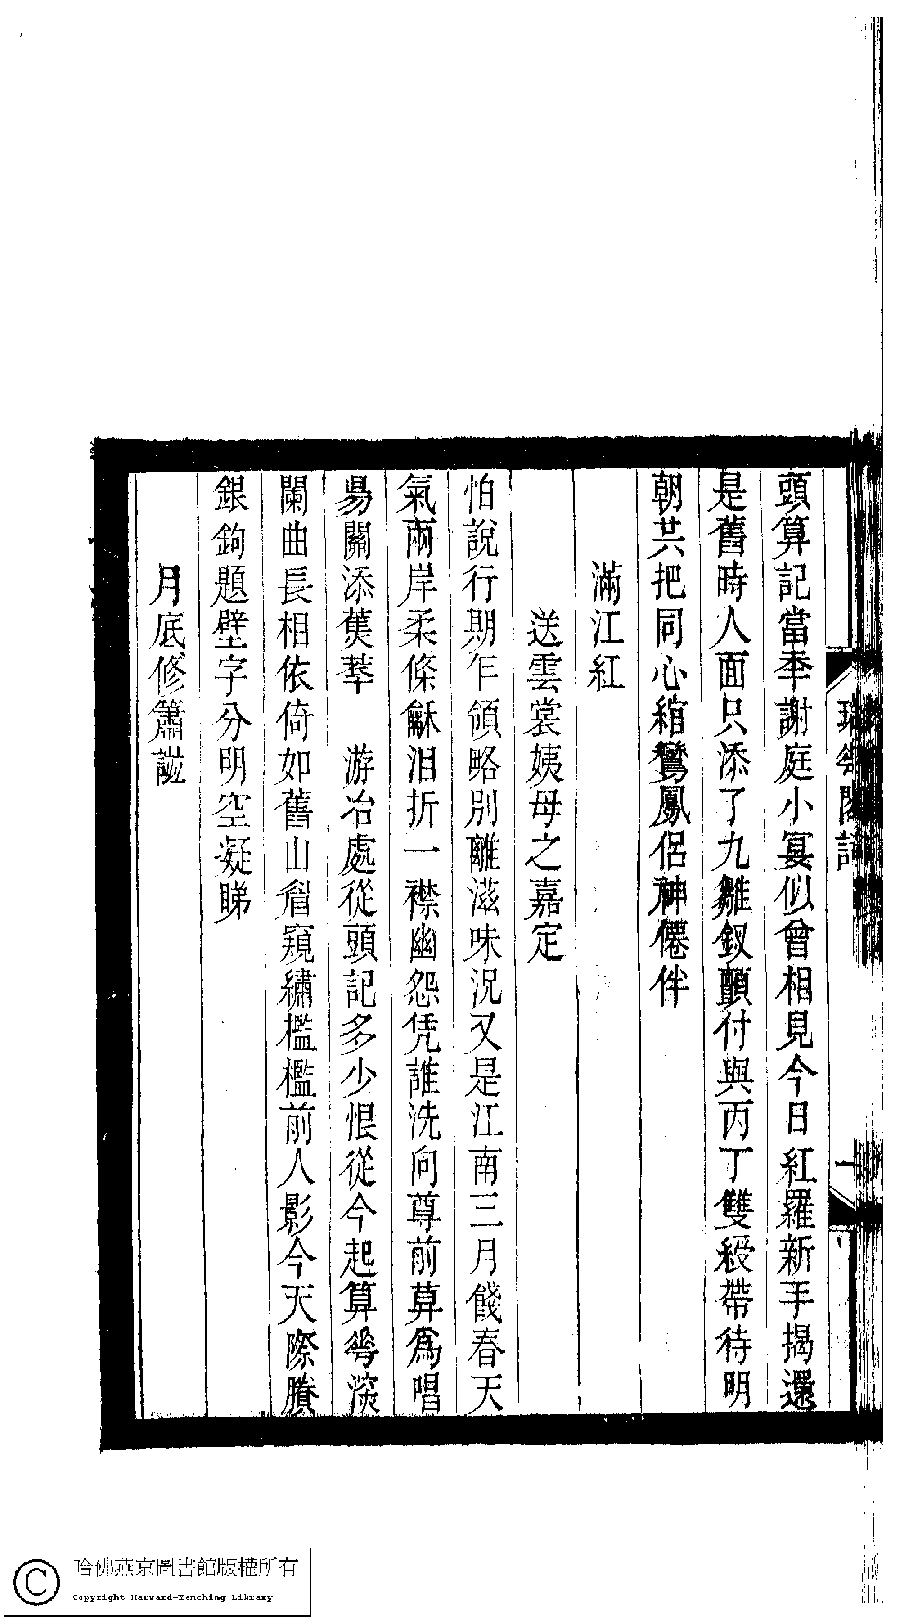 頭算記當季謝庭小宴似曾相見今日紅羅新手揭還
是舊時人面只添了九雛釵顫付與丙丁雙綬帶待明
朝共把同心綰鸞鳳侶神僊伴
滿江紅
送雲裳姨母之嘉定
怕說行期乍領略別離滋味況又是江南三月餞春天
氣兩岸柔條龢淚折一襟幽怨凭誰洗向尊前莫爲唱
昜關添蕉萃　游冶處從頭記多少恨從今起算蕚淡
闌曲長相依倚如舊山眉窺繡檻檻前人影今天際賸
銀鉤題壁字分明空凝睇
月底修簫譜
哈佛燕京圖書館版權所有
Copyright Harvard-Yenching Library